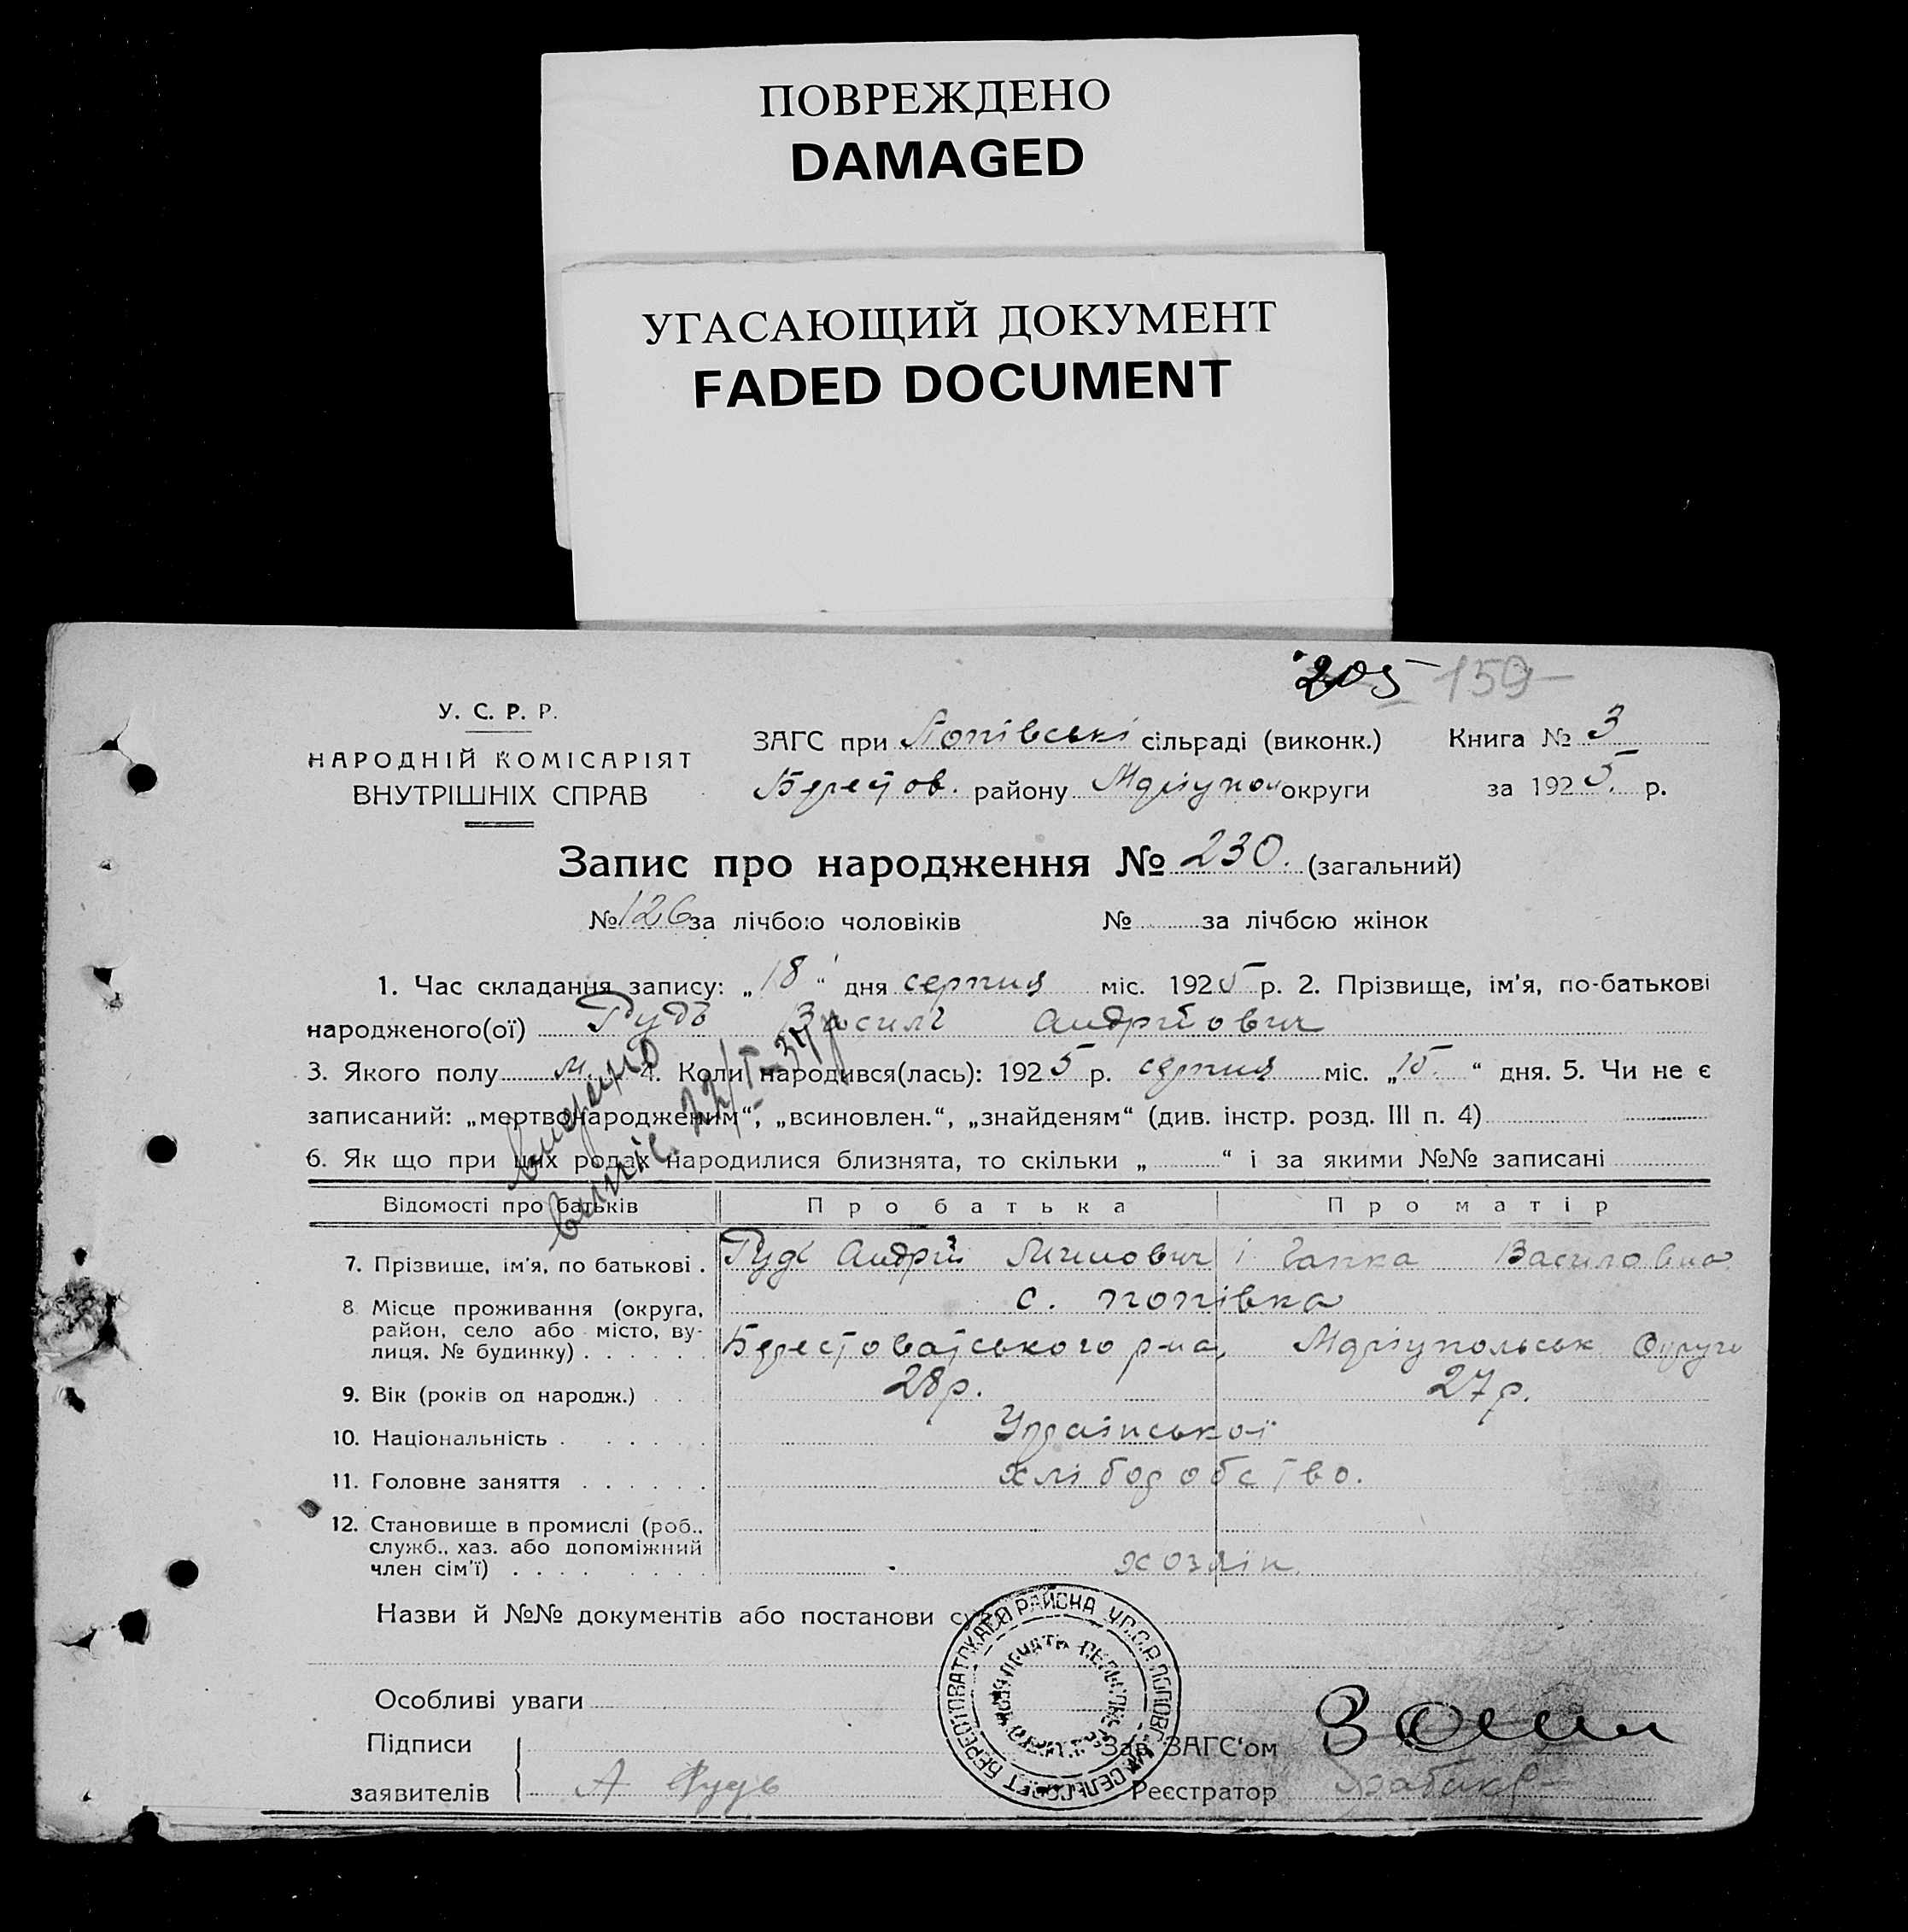 ПОВРЕЖДЕНО
DAMAGED
УГАСАЮЩИЙ ДОКУМЕНТ
FADED DOCUMENT
205 159
У. С. Р. Р.
НАРОДНІЙ КОМІСАРІЯТ
ВНУТРІШНІХ СПРАВ
ЗАГС при Попівські сільраді (виконк.) Книга № 3
Берестов. району Маріупол округи за 1925. р.
Запис про народження № 230. (загальний)
№ 126 за лічбою чоловіків № за лічбою жінок
1. Час складання запису: „18“ дня серпня міс. 1925 р. 2. Прізвище, ім'я, по-батькові
народженого(ої) Рудь Василь Андрійович
3. Якого полу м. 4. Коли народився(лась): 1925 р. серпня міс. „15.“ дня. 5. Чи не є
записаний: „мертвонародженим“, „всиновлен.“, „знайденям“ (див. інстр. розд. III п. 4)
6. Як що при цих родах народилися близнята, то скільки „ “ і за якими №№ записані
видано
випис
Відомості про батьків Про батька Про матір
7. Прізвище, ім'я, по батькові . Рудь Андрій і Гапка Василовна
8. Місце проживання (округа, район, село або місто, вулиця. № будинку) . . . . . . с. Попівка
Берестоватського р-на, Маріупольськ Округи
9. Вік (років од народж.) . . . 28 р. 27 р.
10. Національність . . . . . . Української
11. Головне заняття . . . . . . хліборобство.
12. Становище в промислі (роб.,
служб., хаз. або допоміжний
член сім'ї) . . . . . . . . . хозяїн.
Назви й №№ документів або постанови
Особливі уваги
Підписи
заявителів А Рудь
Зав. ЗАГС'ом
Реєстратор